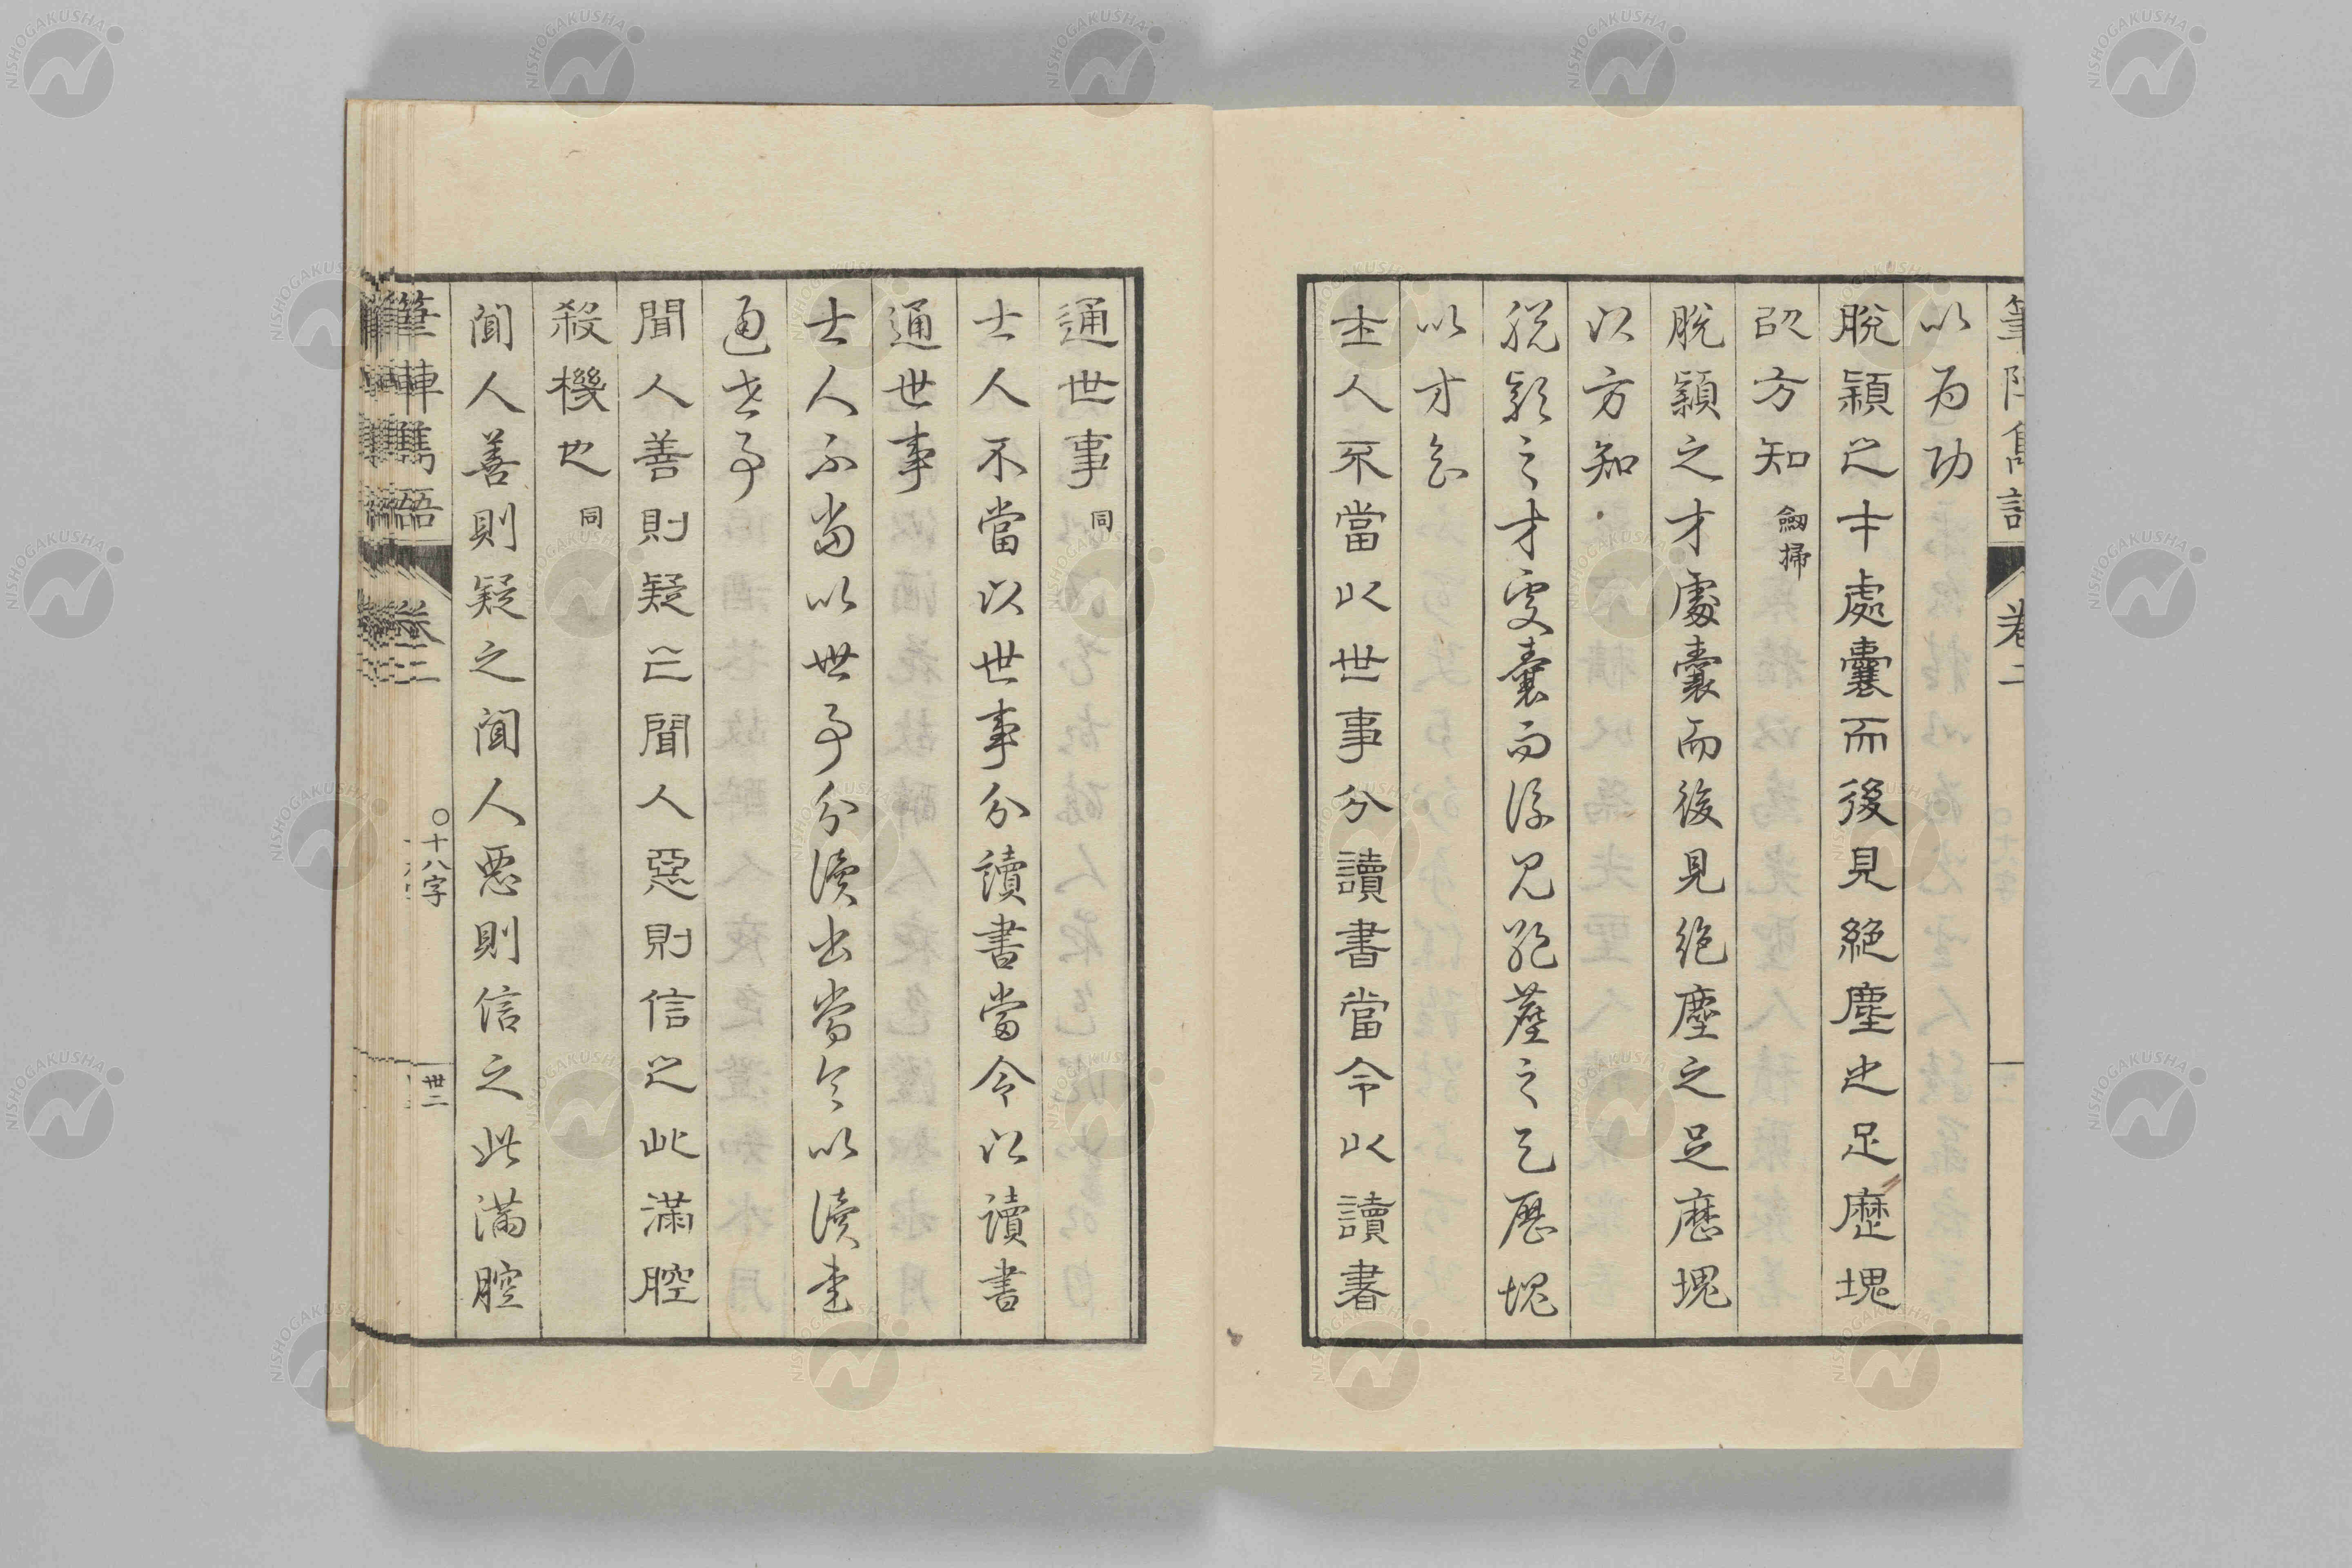 筆陣雋語 卷二
以为功
脫穎之才處囊而後見絕塵之足歷塊
以方知 劔掃
脫穎之才處囊而後見絕塵之足歷塊
以方知
脫穎之才處囊而後見絕塵之足歷塊
以方知
士人不當以世事分讀書當令以讀書
通世事 同
士人不當以世事分讀書當令以讀書
通世事
士人不當以世事分讀書當令以讀書
通世事
聞人善則疑之聞人惡則信之此滿腔
殺機也 同
聞人善則疑之聞人惡則信之此滿腔
筆陣雋語 卷二 〇十八字 卅二
NISHOGAKUSHA